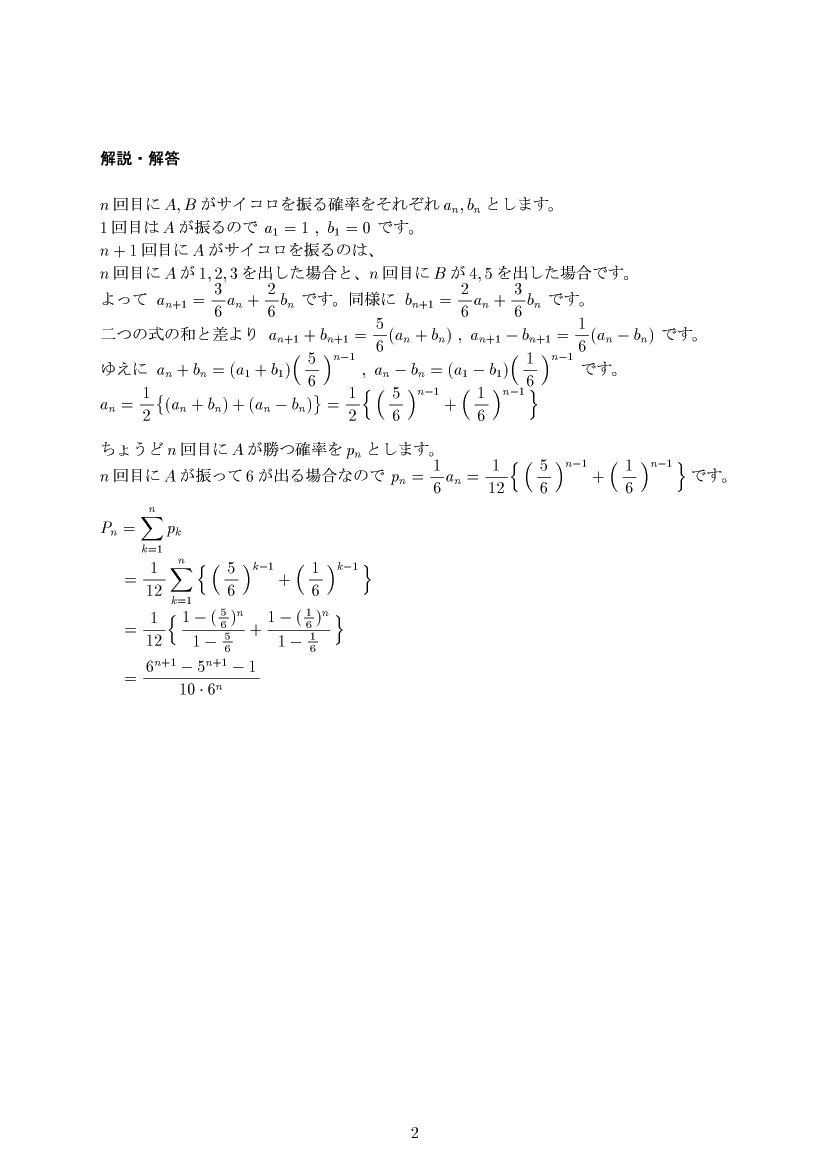 解説・解答
n 回目に A, B がサイコロを振る確率をそれぞれ a_n, b_n とします。
1 回目は A が振るので a_1 = 1 , b_1 = 0 です。
n + 1 回目に A がサイコロを振るのは、
n 回目に A が 1, 2, 3 を出した場合と、n 回目に B が 4, 5 を出した場合です。
よって a_{n+1} = \frac{3}{6}a_n + \frac{2}{6}b_n です。同様に b_{n+1} = \frac{2}{6}a_n + \frac{3}{6}b_n です。
二つの式の和と差より a_{n+1} + b_{n+1} = \frac{5}{6}(a_n + b_n) , a_{n+1} − b_{n+1} = \frac{1}{6}(a_n − b_n) です。
ゆえに a_n + b_n = (a_1 + b_1)(\frac{5}{6})^{n−1} , a_n − b_n = (a_1 − b_1)(\frac{1}{6})^{n−1} です。
a_n = \frac{1}{2}{(a_n + b_n) + (a_n − b_n)} = \frac{1}{2}{(\frac{5}{6})^{n−1} + (\frac{1}{6})^{n−1}}
ちょうど n 回目に A が勝つ確率を p_n とします。
n 回目に A が振って 6 が出る場合なので p_n = \frac{1}{6}a_n = \frac{1}{12}{(\frac{5}{6})^{n−1} + (\frac{1}{6})^{n−1}} です。
P_n = \sum_{k=1}^{n} p_k
= \frac{1}{12} \sum_{k=1}^{n} {(\frac{5}{6})^{k−1} + (\frac{1}{6})^{k−1}}
= \frac{1}{12}{\frac{1 − (\frac{5}{6})^n}{1 − \frac{5}{6}} + \frac{1 − (\frac{1}{6})^n}{1 − \frac{1}{6}}}
= \frac{6^{n+1} − 5^{n+1} − 1}{10 · 6^n}
2